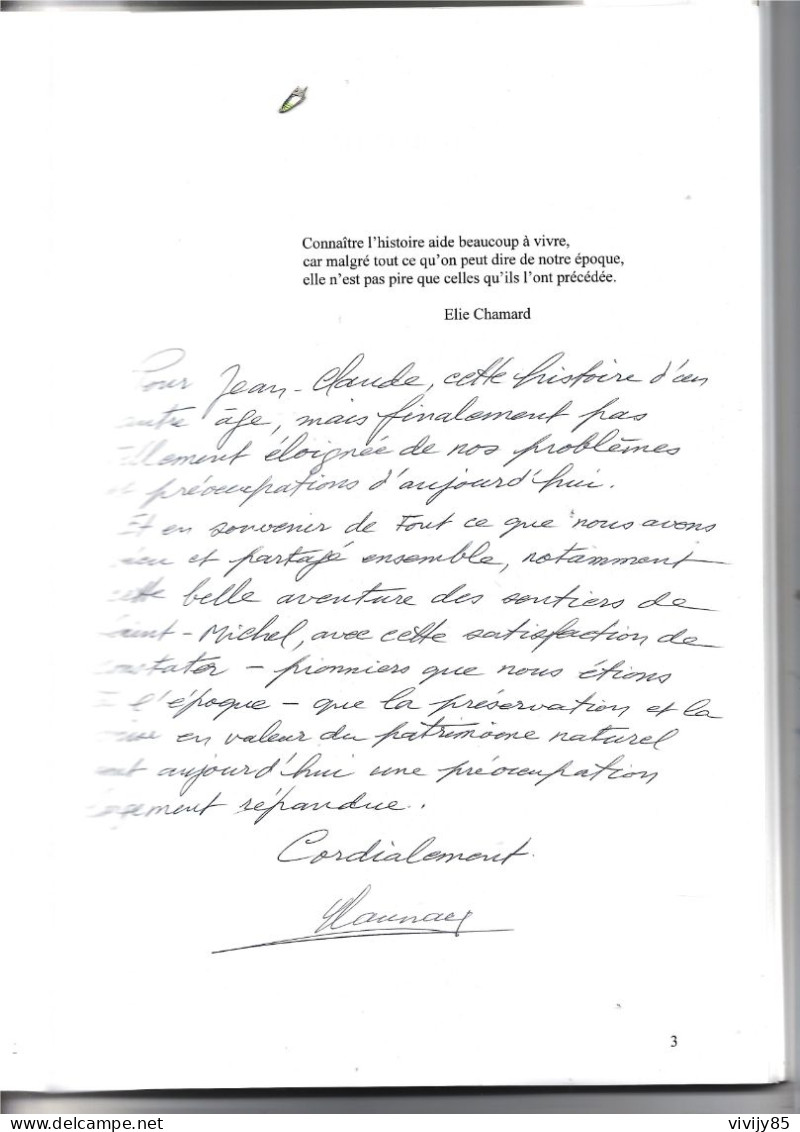 Connaître l'histoire aide beaucoup à vivre,
car malgré tout ce qu'on peut dire de notre époque,
elle n'est pas pire que celles qu'ils l'ont précédée.
Elie Chamard
Pour Jean-Claude, cette histoire d'un
autre âge, mais finalement pas
tellement éloignée de nos problèmes
et préoccupations d'aujourd'hui.
Et en souvenir de tout ce que nous avons
vécu et partagé ensemble, notamment
cette belle aventure des sentiers de
Saint-Michel, avec cette satisfaction de
constater - pionniers que nous étions
à l'époque - que la préservation et la
mise en valeur du patrimoine naturel
sont aujourd'hui une préoccupation
largement répandue.
Cordialement.
3
delcampe.net
vivijy85